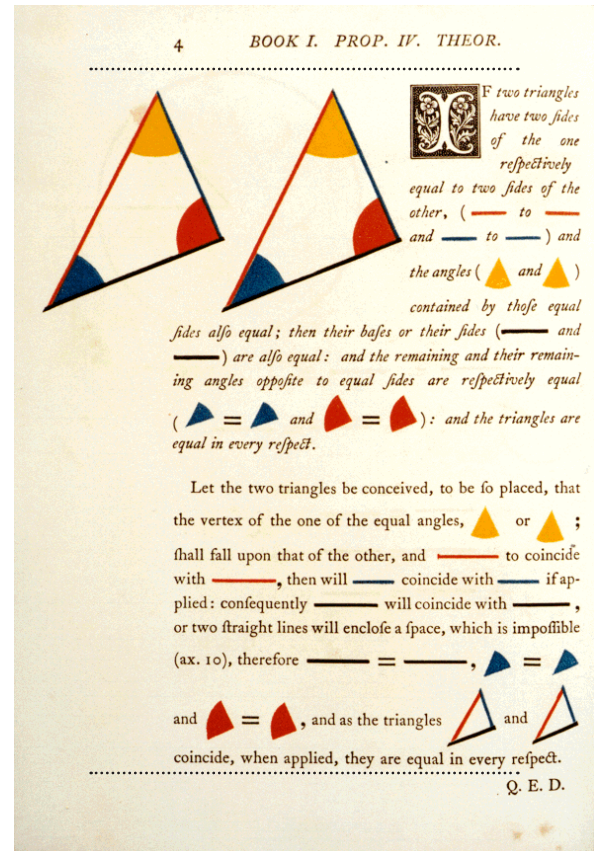 4 BOOK I. PROP. IV. THEOR.
IF two triangles
have two ſides
of the one
reſpectively
equal to two ſides of the
other, ( to
and to ) and
the angles ( and )
contained by thoſe equal
ſides alſo equal; then their baſes or their ſides ( and
) are alſo equal: and the remaining and their remain-
ing angles oppoſite to equal ſides are reſpectively equal
( = and = ): and the triangles are
equal in every reſpect.
Let the two triangles be conceived, to be ſo placed, that
the vertex of the one of the equal angles, or ;
ſhall fall upon that of the other, and to coincide
with , then will coincide with if ap-
plied: conſequently will coincide with ,
or two ſtraight lines will encloſe a ſpace, which is impoſſible
(ax. 10), therefore = , =
and = , and as the triangles and
coincide, when applied, they are equal in every reſpect.
Q. E. D.